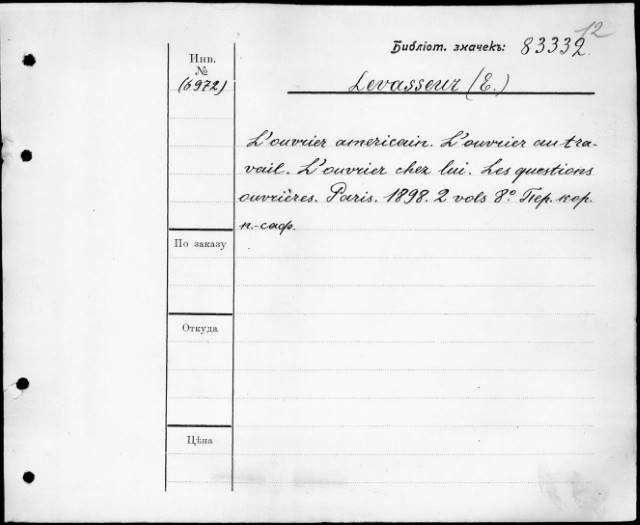 12
Библіот. значекъ: 83332.
Инв.
№
(6972)
Levasseur (E.)
L'ouvrier americain. L'ouvrier au tra-
vail. L'ouvrier chez lui. Les questions
ouvrières. Paris. 1898. 2 vols 8º Пер. кор.
п.-саф.
По заказу
Откуда
Цѣна